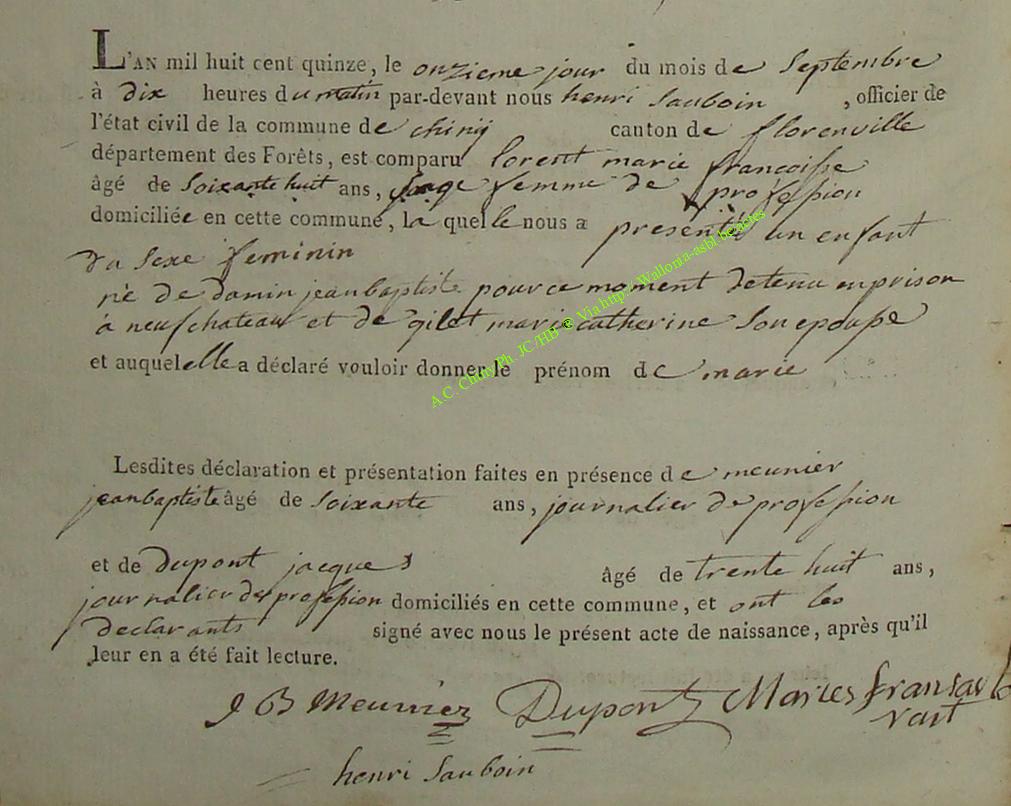 L'AN mil huit cent quinze, le onzieme jour du mois de Septembre
à dix heures du matin par-devant nous henri Sauboin , officier de
l'état civil de la commune de chinij canton de florenville
département des Forêts, est comparu lorent marie francoisse
âgé de Soixante huit ans, sage femme de profession
domiciliée en cette commune, la quelle nous a presenté un enfant
du Sexe feminin
né de damin jeanbaptiste pour ce moment detenu en prison
à neufchateau et de gilet marie catherine Son epousse
et auquel elle a déclaré vouloir donner le prénom de marie
A.C. Chiny Ph JC/HB © Via http://Wallonia-asbl.be/actes
Lesdites déclaration et présentation faites en présence de meunier
jeanbaptiste âgé de Soixante ans, journalier de profession
et de dupont jacques âgé de trente huit ans,
journalier de profession domiciliés en cette commune, et ont les
declarants signé avec nous le présent acte de naissance, après qu'il
leur en a été fait lecture.
J B Meunier Dupont Maries fransae
henri Sauboin